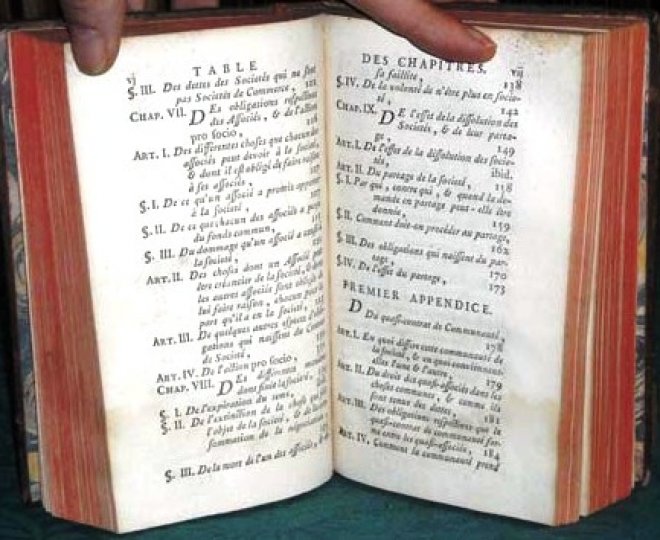 vj TABLE
§. III. Des dettes des Societés qui ne sont
pas Societés de Commerce, 122
CHAP. VII. DEs obligations respectives
des Associés, & de l'action
pro socio,
ART. I. Des differentes choses que chacun des
associés peut devoir à la societé,
& dont il est obligé de faire raison
à ses associés,
§. I. De ce qu'un associé a promis apporter
à la societé,
§. II. De ce que chacun des associés a
du fonds commun,
§. III. Du dommage qu'un associé a
la societé,
ART. II. Des choses dont un Associé peut
être créancier de la societé, &
les autres associés sont obligés de
lui faire raison, chacun pour la
part qu'il a en la societé,
ART. III. De quelques autres especes d'obligations
qui naissent du
de Societé,
ART. IV. De l'action pro socio,
CHAP. VIII. DEs differentes
dont finit la societé,
§. I. De l'expiration du tems,
§. II. De l'extinction de la chose qui fait
l'objet de la societé, & de la
sommation de la négociation
§. III. De la mort de l'un des associés, & de
DES CHAPITRES. vij
sa faillite, 138
§. IV. De la volonté de n'être plus en socie-
té, 142
CHAP. IX. DE l'effet de la dissolution des
Societés, & de leur parta-
ge, 149
ART. I. De l'effet de la dissolution des socie-
tés, ibid.
ART. II. Du partage de la societé, 158
§. I. Par qui, contre qui, & quand la de-
mande en partage peut-elle être
donnée, 159
§. II. Comment doit-on procéder au partage,
162
§. III. Des obligations qui naissent du par-
tage, 170
§. IV. De l'effet du partage, 173
PREMIER APPENDICE.
DU quasi-contrat de Communauté,
178
ART. I. En quoi differe cette communauté de
la societé, & en quoi conviennent-
elles l'une & l'autre, 179
ART. II. Du droit des quasi-associés dans les
choses communes, & comme ils
sont tenus des dettes, 181
ART. III. Des obligations respectives que le
quasi-contrat de communauté for-
me entre les quasi-associés, 184
ART. IV. Comment la communauté prend